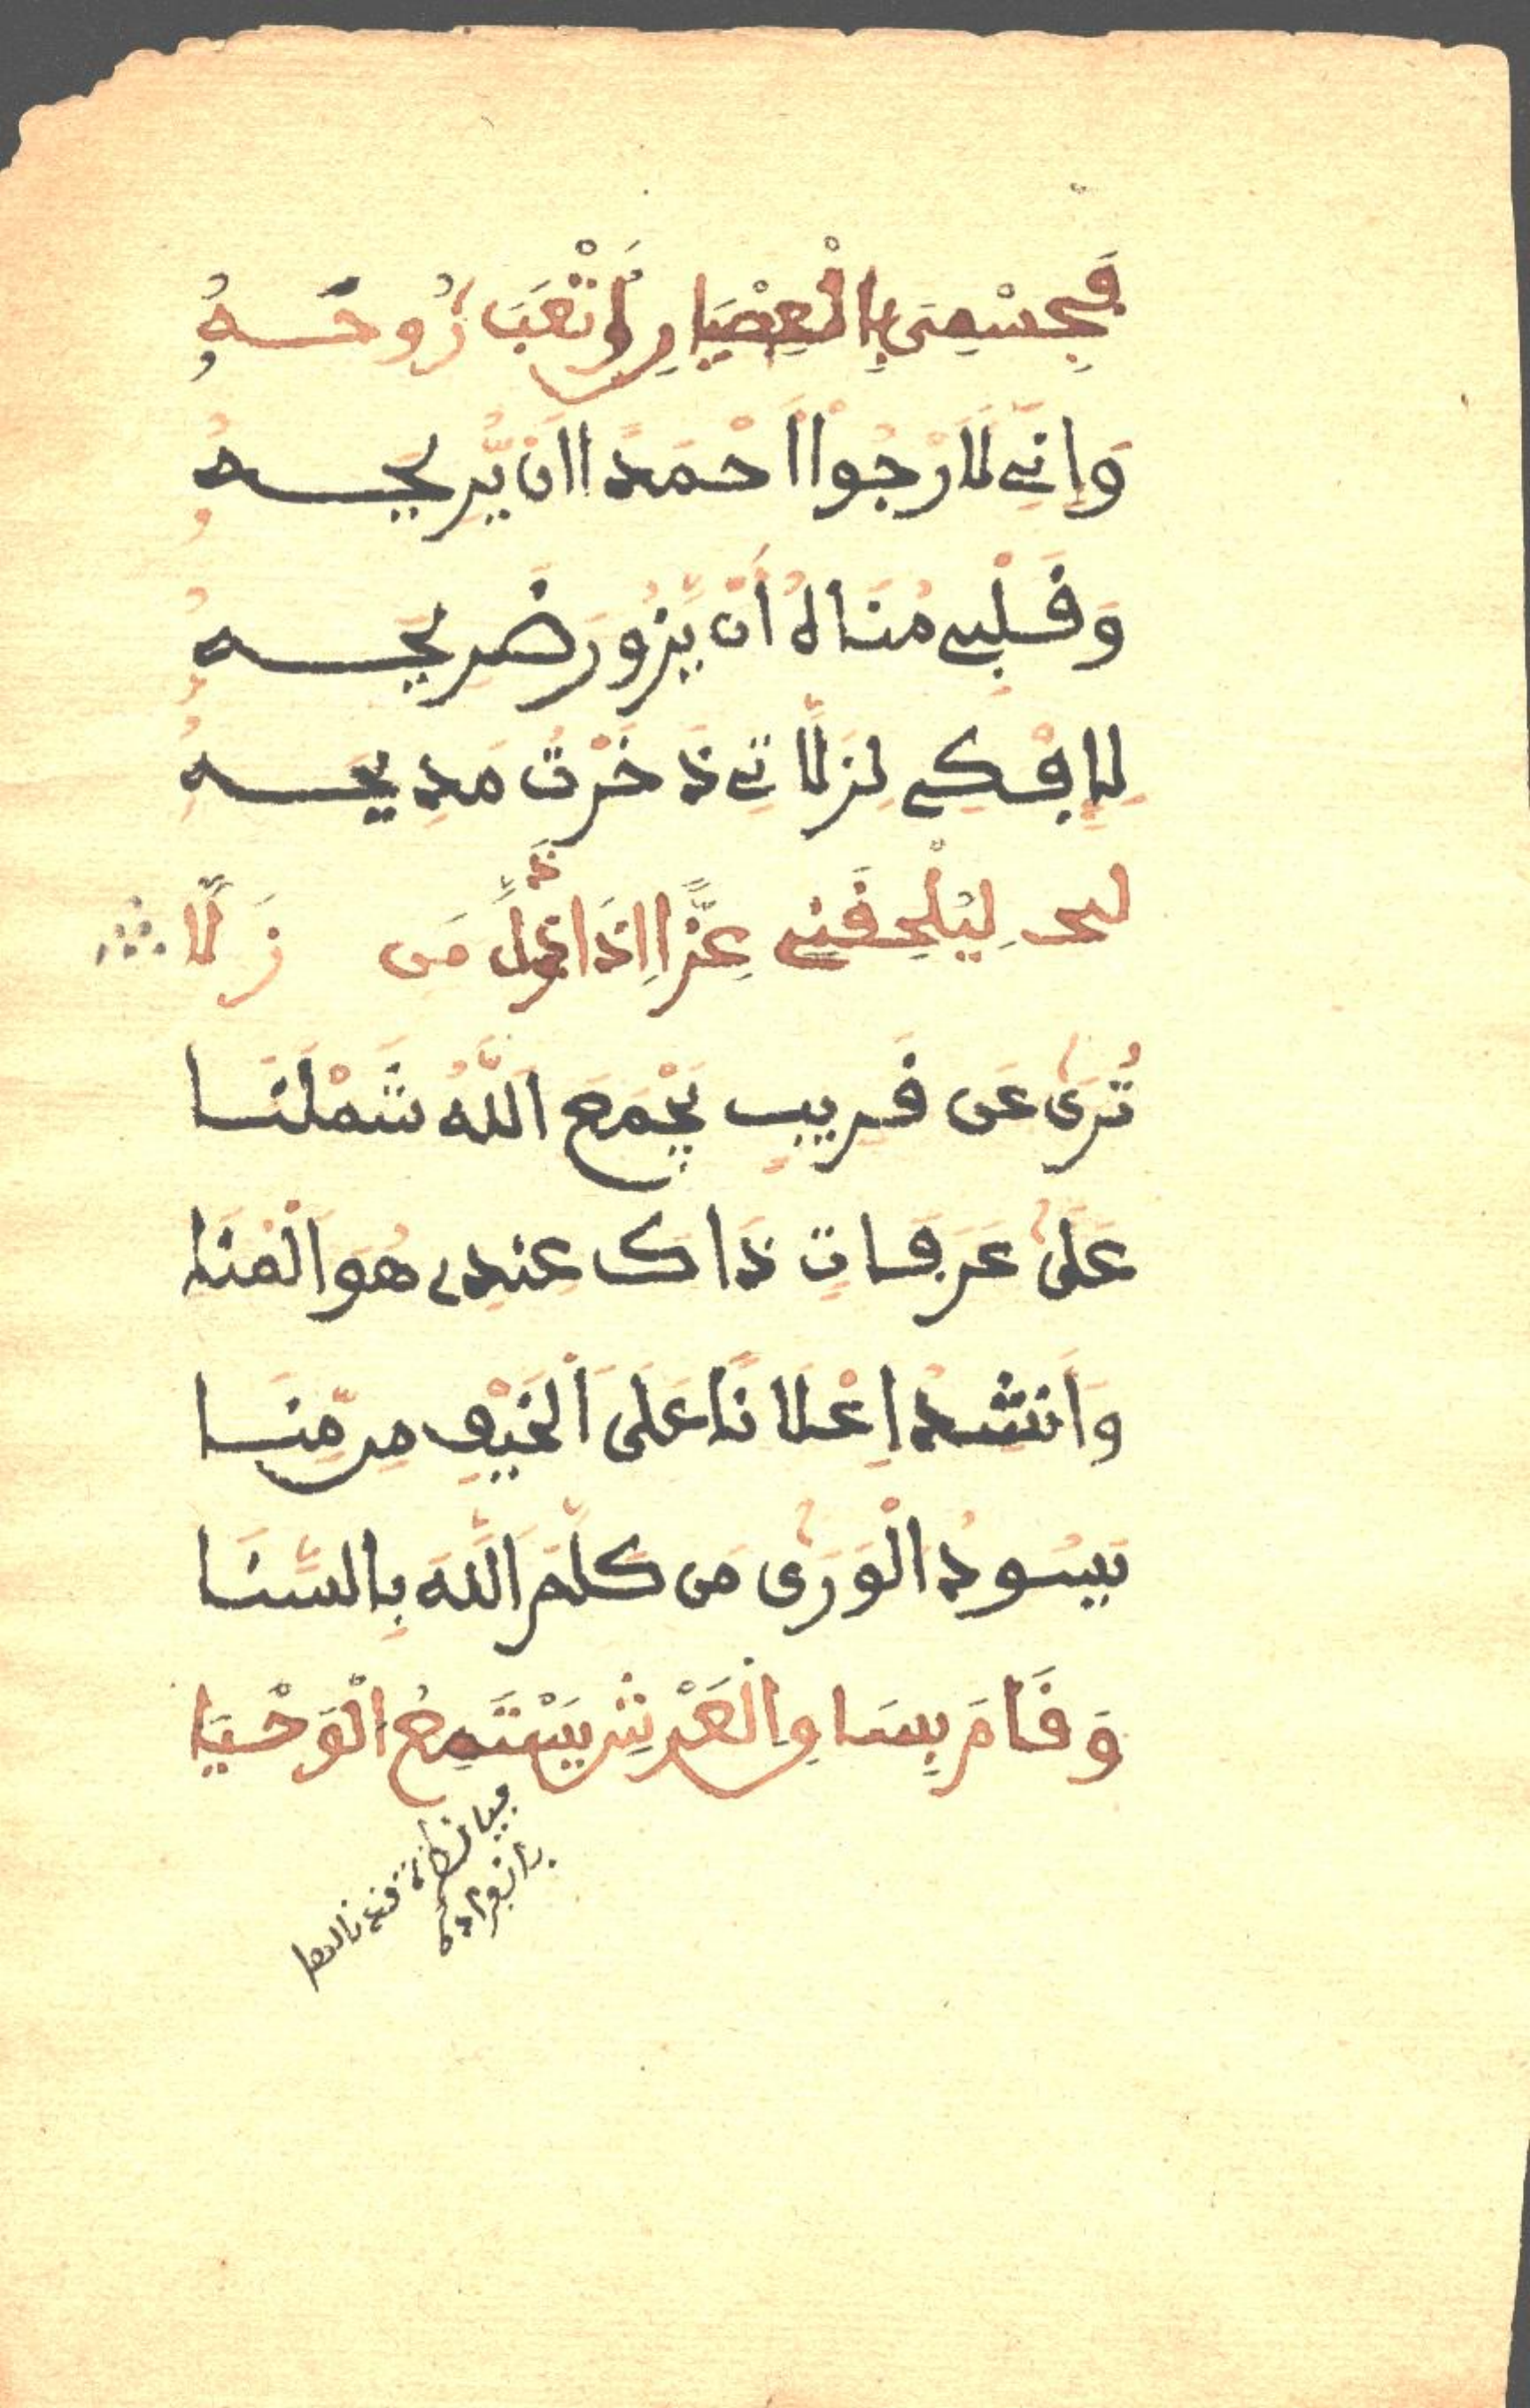 فَجِسْمِى بِالْعِصْيَانِ أَتْعَبَ رُوحَـهُ
وَإِنِّے لَأَرْجُواْ أَحْمَدًا أَن يُّرِيحَـهُ
وَقَلْبِے مُنَاهُ أَن يَّزُورَ ضَرِيحَـهُ
لِإِفْكِے لِزَلَّاتِے ذَخَرْتُ مَدِيحَـهُ
لِيُلْحِفَنِے عِزًّا إِذَا ذُلَّ مَن زَلَّا
تُرَىٰ عَن قَرِيبٍ يَجْمَعُ اللَّهُ شَمْلَنَـا
عَلَىٰ عَرَفَاتٍ ذَاكَ عِندِے هُوَ الْمُنَا
وَأَنشُدُ إِعْلَانًا عَلَى الْخَيْفِ مِن مِّنَـا
يَسُودُ الْوَرَىٰ مَن كَلَّمَ اللَّهَ بِالسَّنَـا
وَقَامَ بِسَاقِ الْعَرْشِ يَسْتَمِعُ الْوَحْيَا